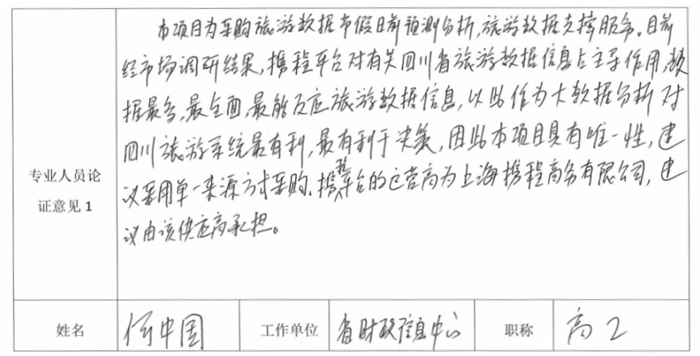 本项目为采购旅游数据节假日前预测分析,旅游数据支撑服务。目前
经市场调研结果,携程平台对有关四川省旅游数据信息占主导作用,数
据最多,最全面,最能反应旅游数据信息,以此作为大数据分析对
四川旅游系统最有利,最有利于决策,因此本项目具有唯一性,建
议采用单一来源方式采购。携程平台的运营商为上海携程商务有限公司,建
议由该供应商承担。
专业人员论
证意见 1
姓名 何中国 工作单位 省财政信息中心 职称 高工